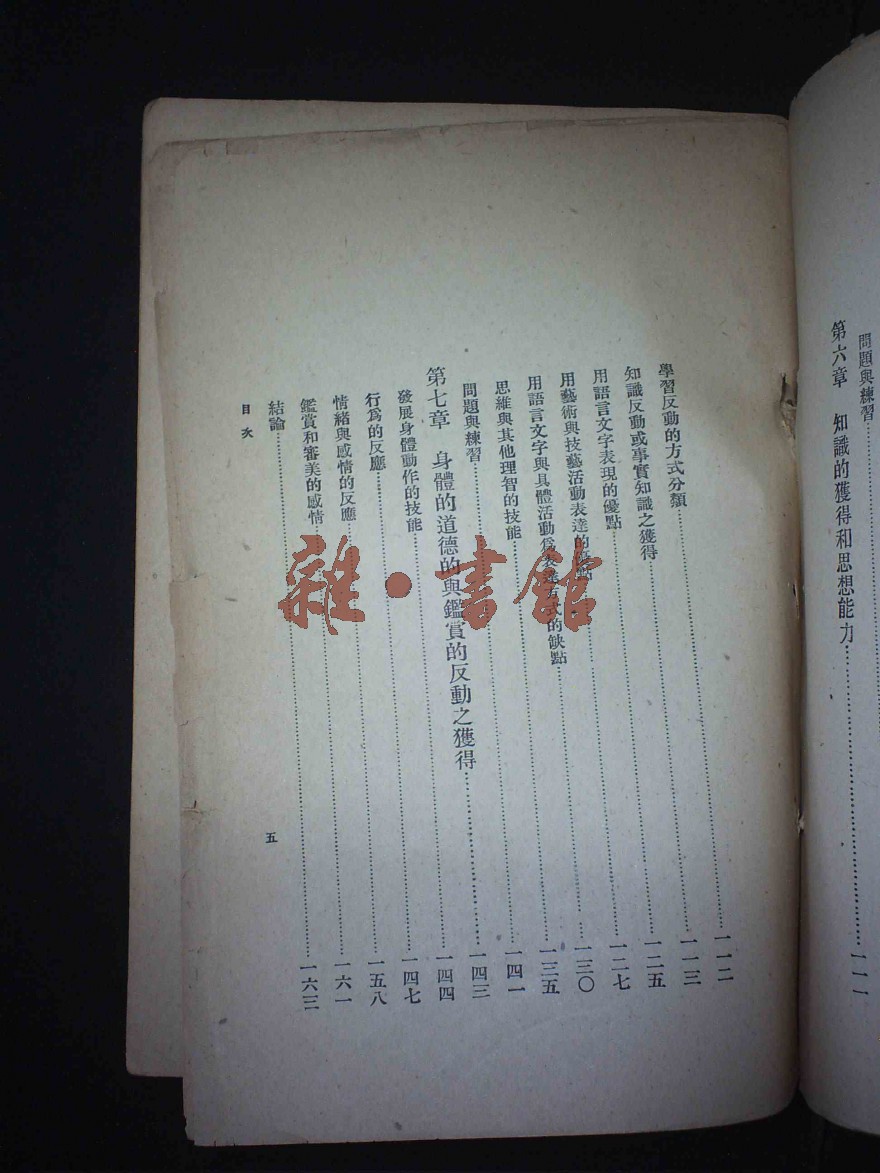 問題與練習
第六章　知識的獲得和思想能力……一一一
學習反動的方式分類……一一二
知識反動或事實知識之獲得……一一三
用語言文字表現的優點……一二五
用藝術與技藝活動表達的優點……一二七
用語言文字與具體活動爲表達方式的缺點……一三〇
思維與其他理智的技能……一三五
問題與練習……一四一
第七章　身體的道德的與鑑賞的反動之獲得……一四三
發展身體動作的技能……一四四
行爲的反應……一四七
情緒與感情的反應……一五八
鑑賞和審美的感情……一六一
結論……一六三
目次
五
雜·書館